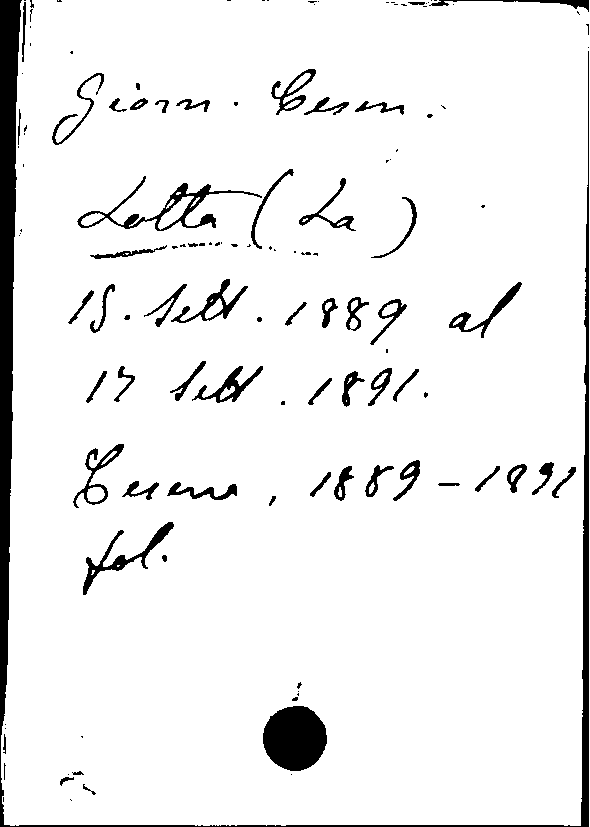 Giorn. Cesen.
Lotta (La)
15. Sett. 1889 al
17 Sett. 1891.
Cesena, 1889-1891
fol.